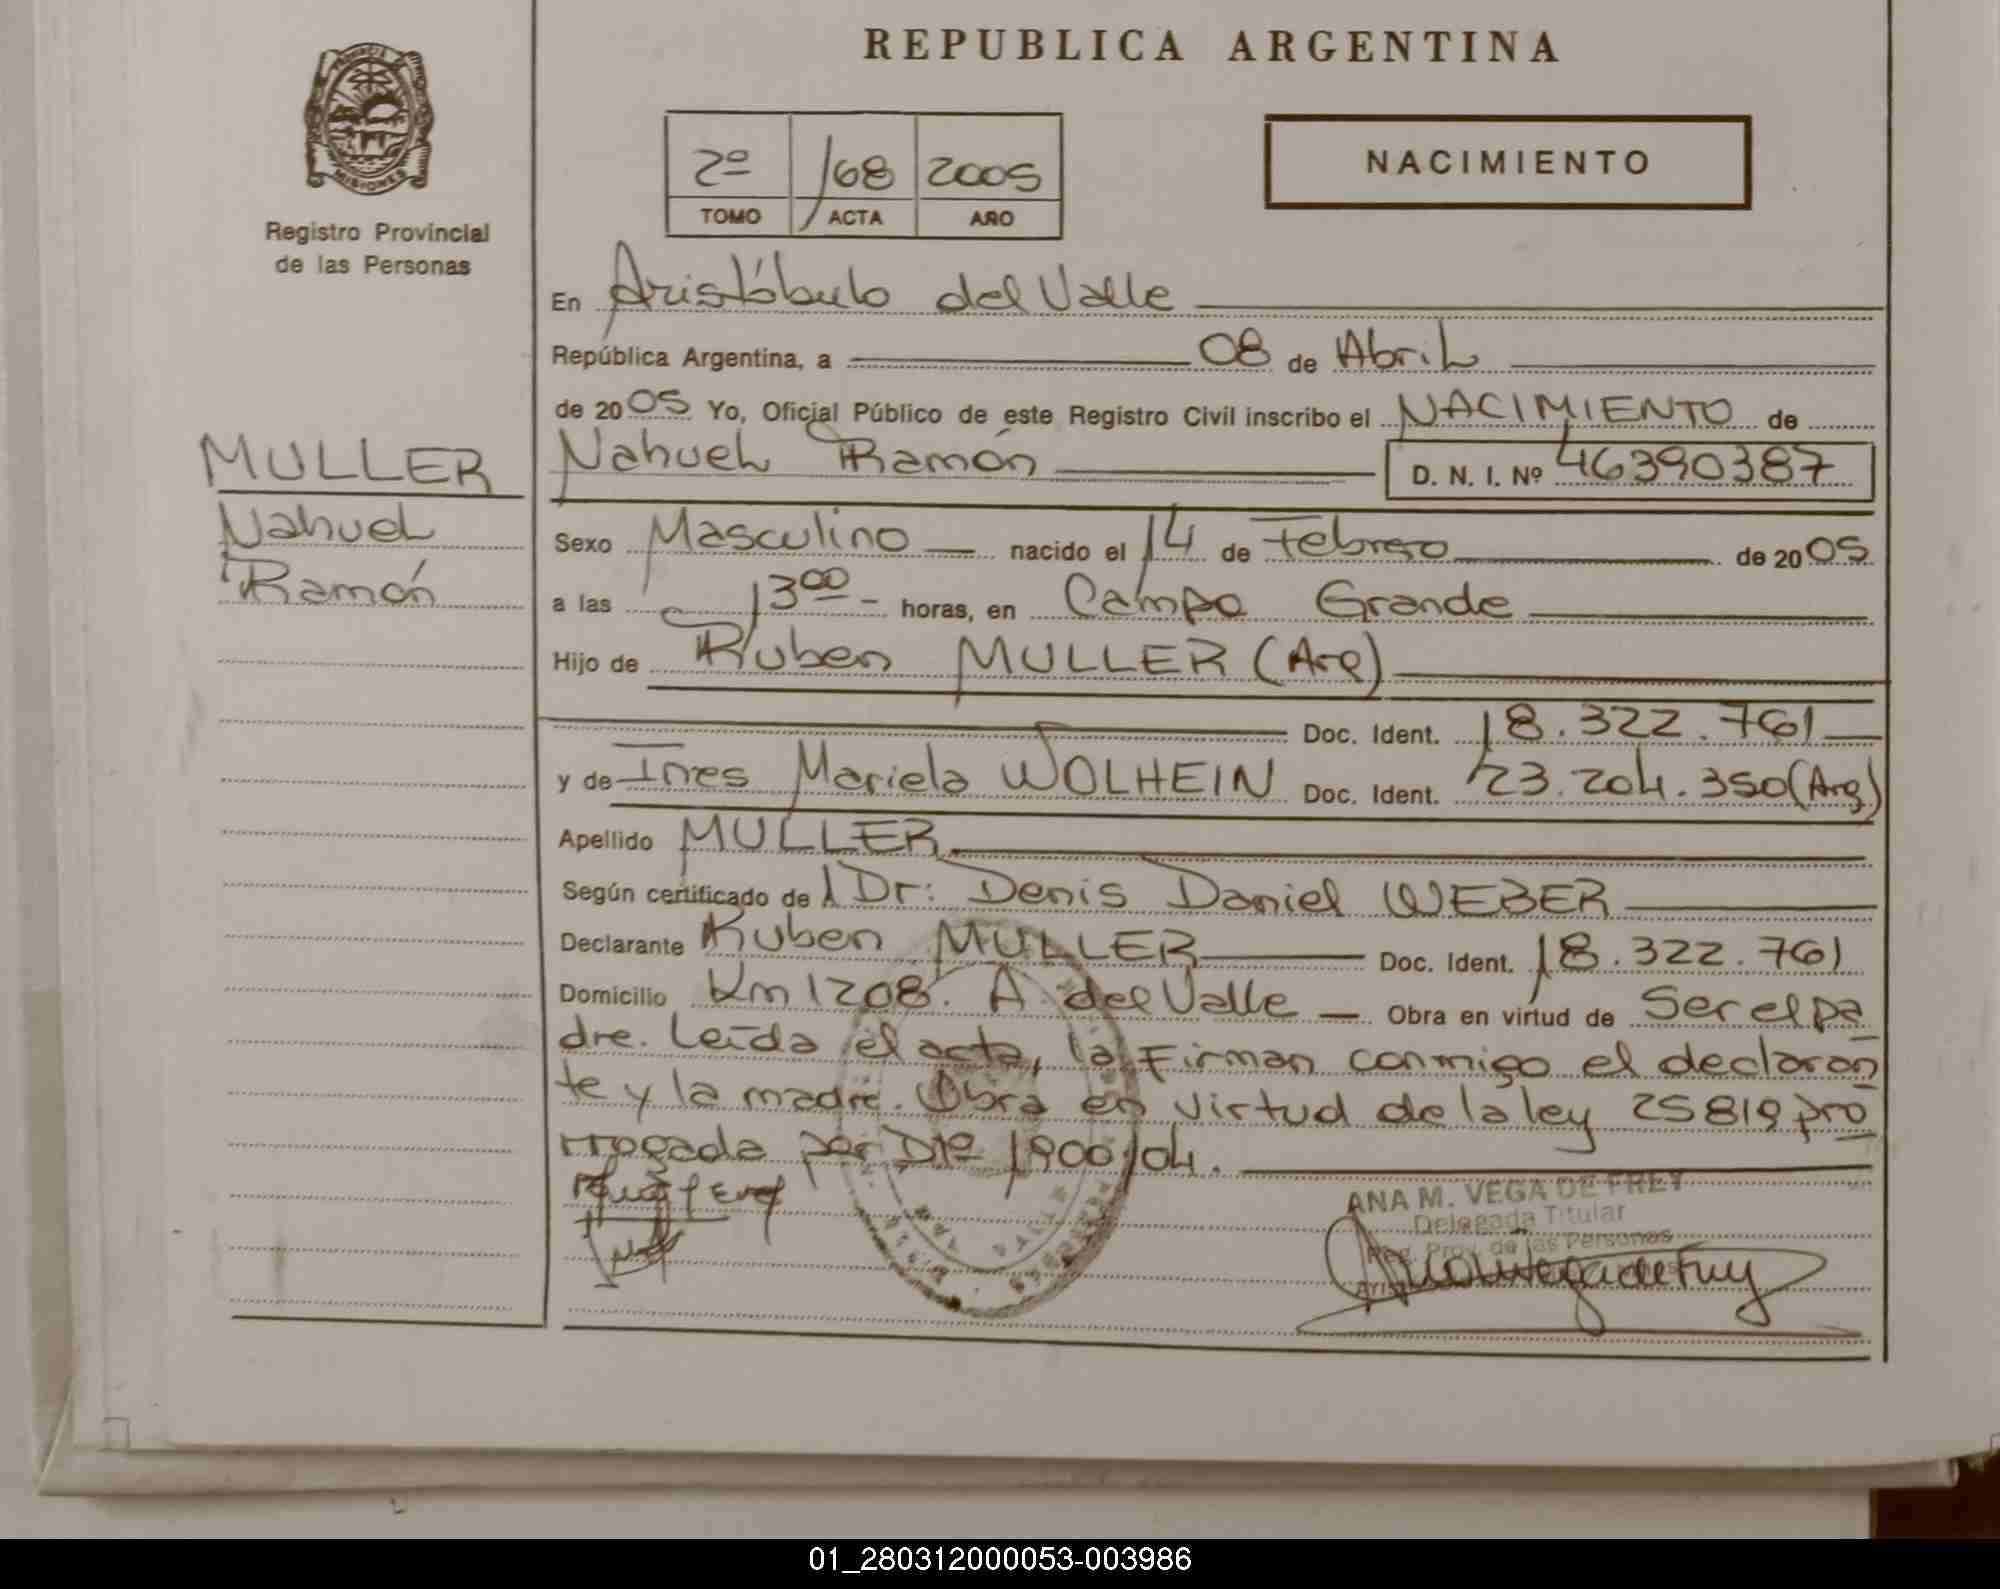 REPUBLICA ARGENTINA
PROVINCIA
MISIONES
Registro Provincial
de las Personas
2º 168 2005
TOMO ACTA AÑO
NACIMIENTO
En Aristóbulo del Valle
República Argentina, a 08 de Abril
de 2005 Yo, Oficial Público de este Registro Civil inscribo el NACIMIENTO de
MULLER
Nahuel
Ramón
Nahuel Ramón D. N. I. Nº 46390387
Sexo Masculino nacido el 14 de Febrero de 2005
a las 13 00 - horas, en Campo Grande
Hijo de Ruben MULLER (Arg)
Doc. Ident. 18.322.761
y de Ines Mariela WOLHEIN Doc. Ident. 23.204.350 (Arg)
Apellido MULLER
Según certificado de Dr: Denis Daniel WEBER
Declarante Ruben MULLER Doc. Ident. 18.322.761
Domicilio Km 1208. A. del Valle Obra en virtud de Ser el pa
dre. Leída el acta, la Firman conmigo el declaran
te y la madre. Obra en virtud de la ley 25819 pro
rrogada por Dto 1900/04.
ANA M. VEGA DE FREY
Delegada Titular
Reg. Prov. de las Personas
01_280312000053-003986